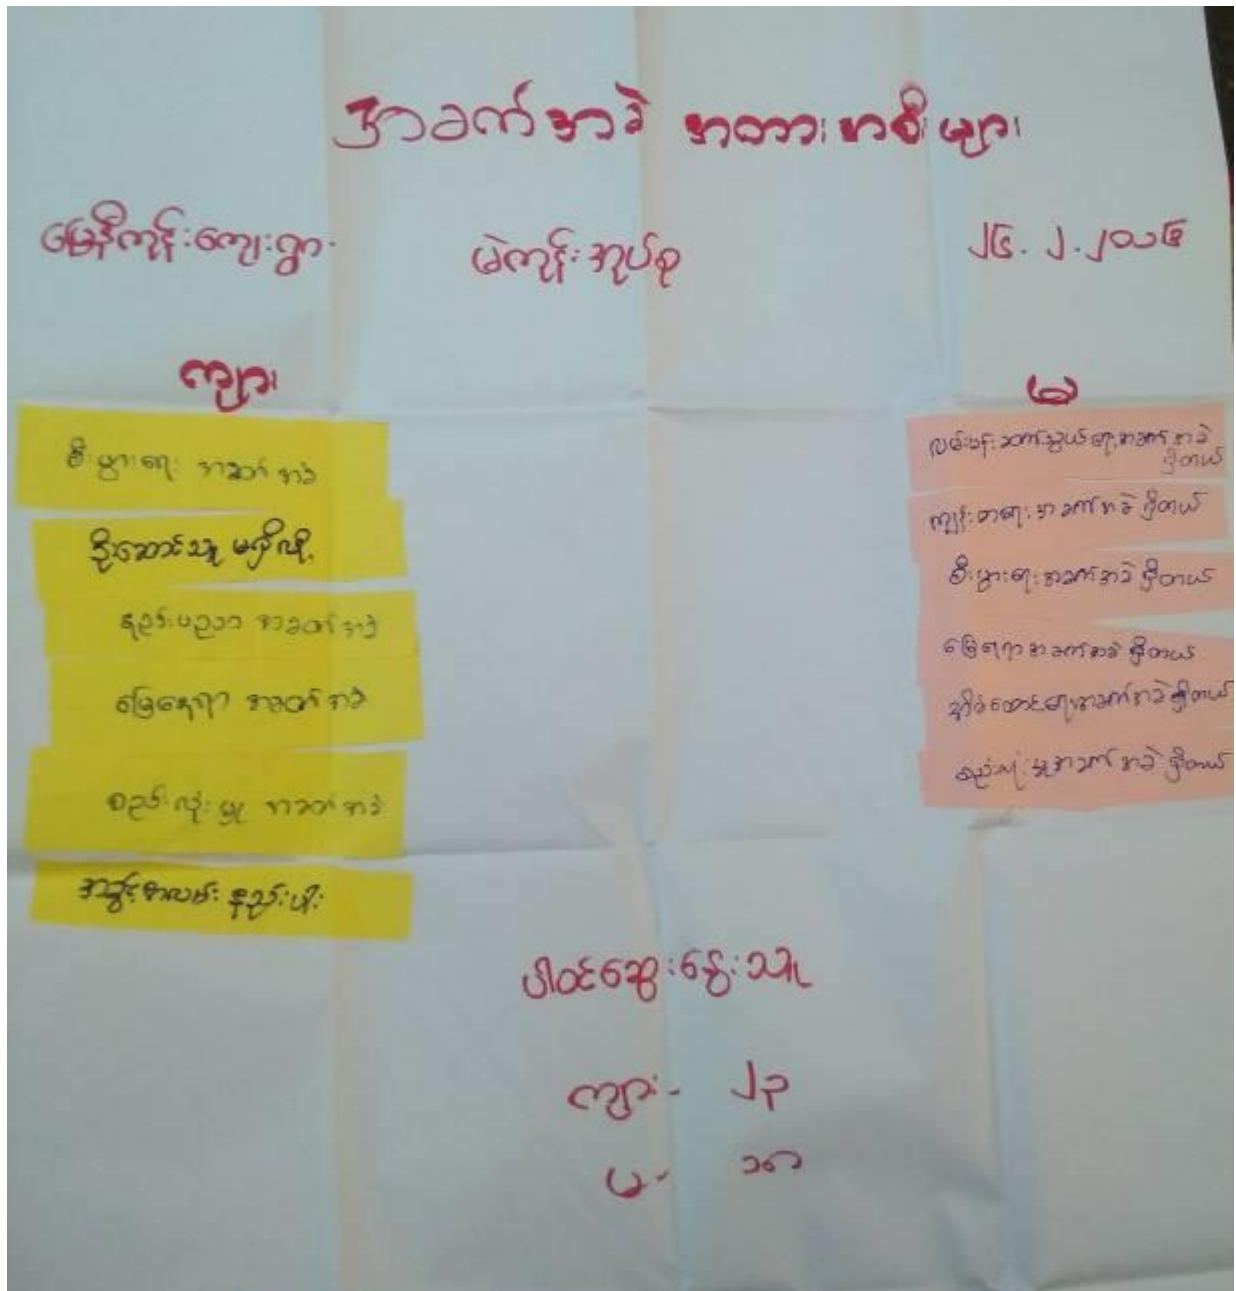 အခက်အခဲ အတားအစီးများ
မြေနီကုန်းကျေးရွာ
မဲကုန်းအုပ်စု
၂၄.၂.၂၀၁၆
ကျား
မ
စီးပွားရေး အခက်အခဲ
ဦးဆောင်သူ မရှိလို့
နည်းပညာ အခက်အခဲ
မြေနေရာ အခက်အခဲ
စည်းလုံးမှု အခက်အခဲ
အခွင့်အလမ်း နည်းပါး
လမ်းပန်းဆက်သွယ်ရေးအခက်အခဲ
ရှိတယ်
ကျန်းမာရေးအခက်အခဲရှိတယ်
စီးပွားရေးအခက်အခဲရှိတယ်
မြေနေရာအခက်အခဲရှိတယ်
အိမ်ထောင်ရေးအခက်အခဲရှိတယ်
စည်းလုံးမှုအခက်အခဲရှိတယ်
ပါဝင်ဆွေးနွေးသူ
ကျား- ၂၃
မ-